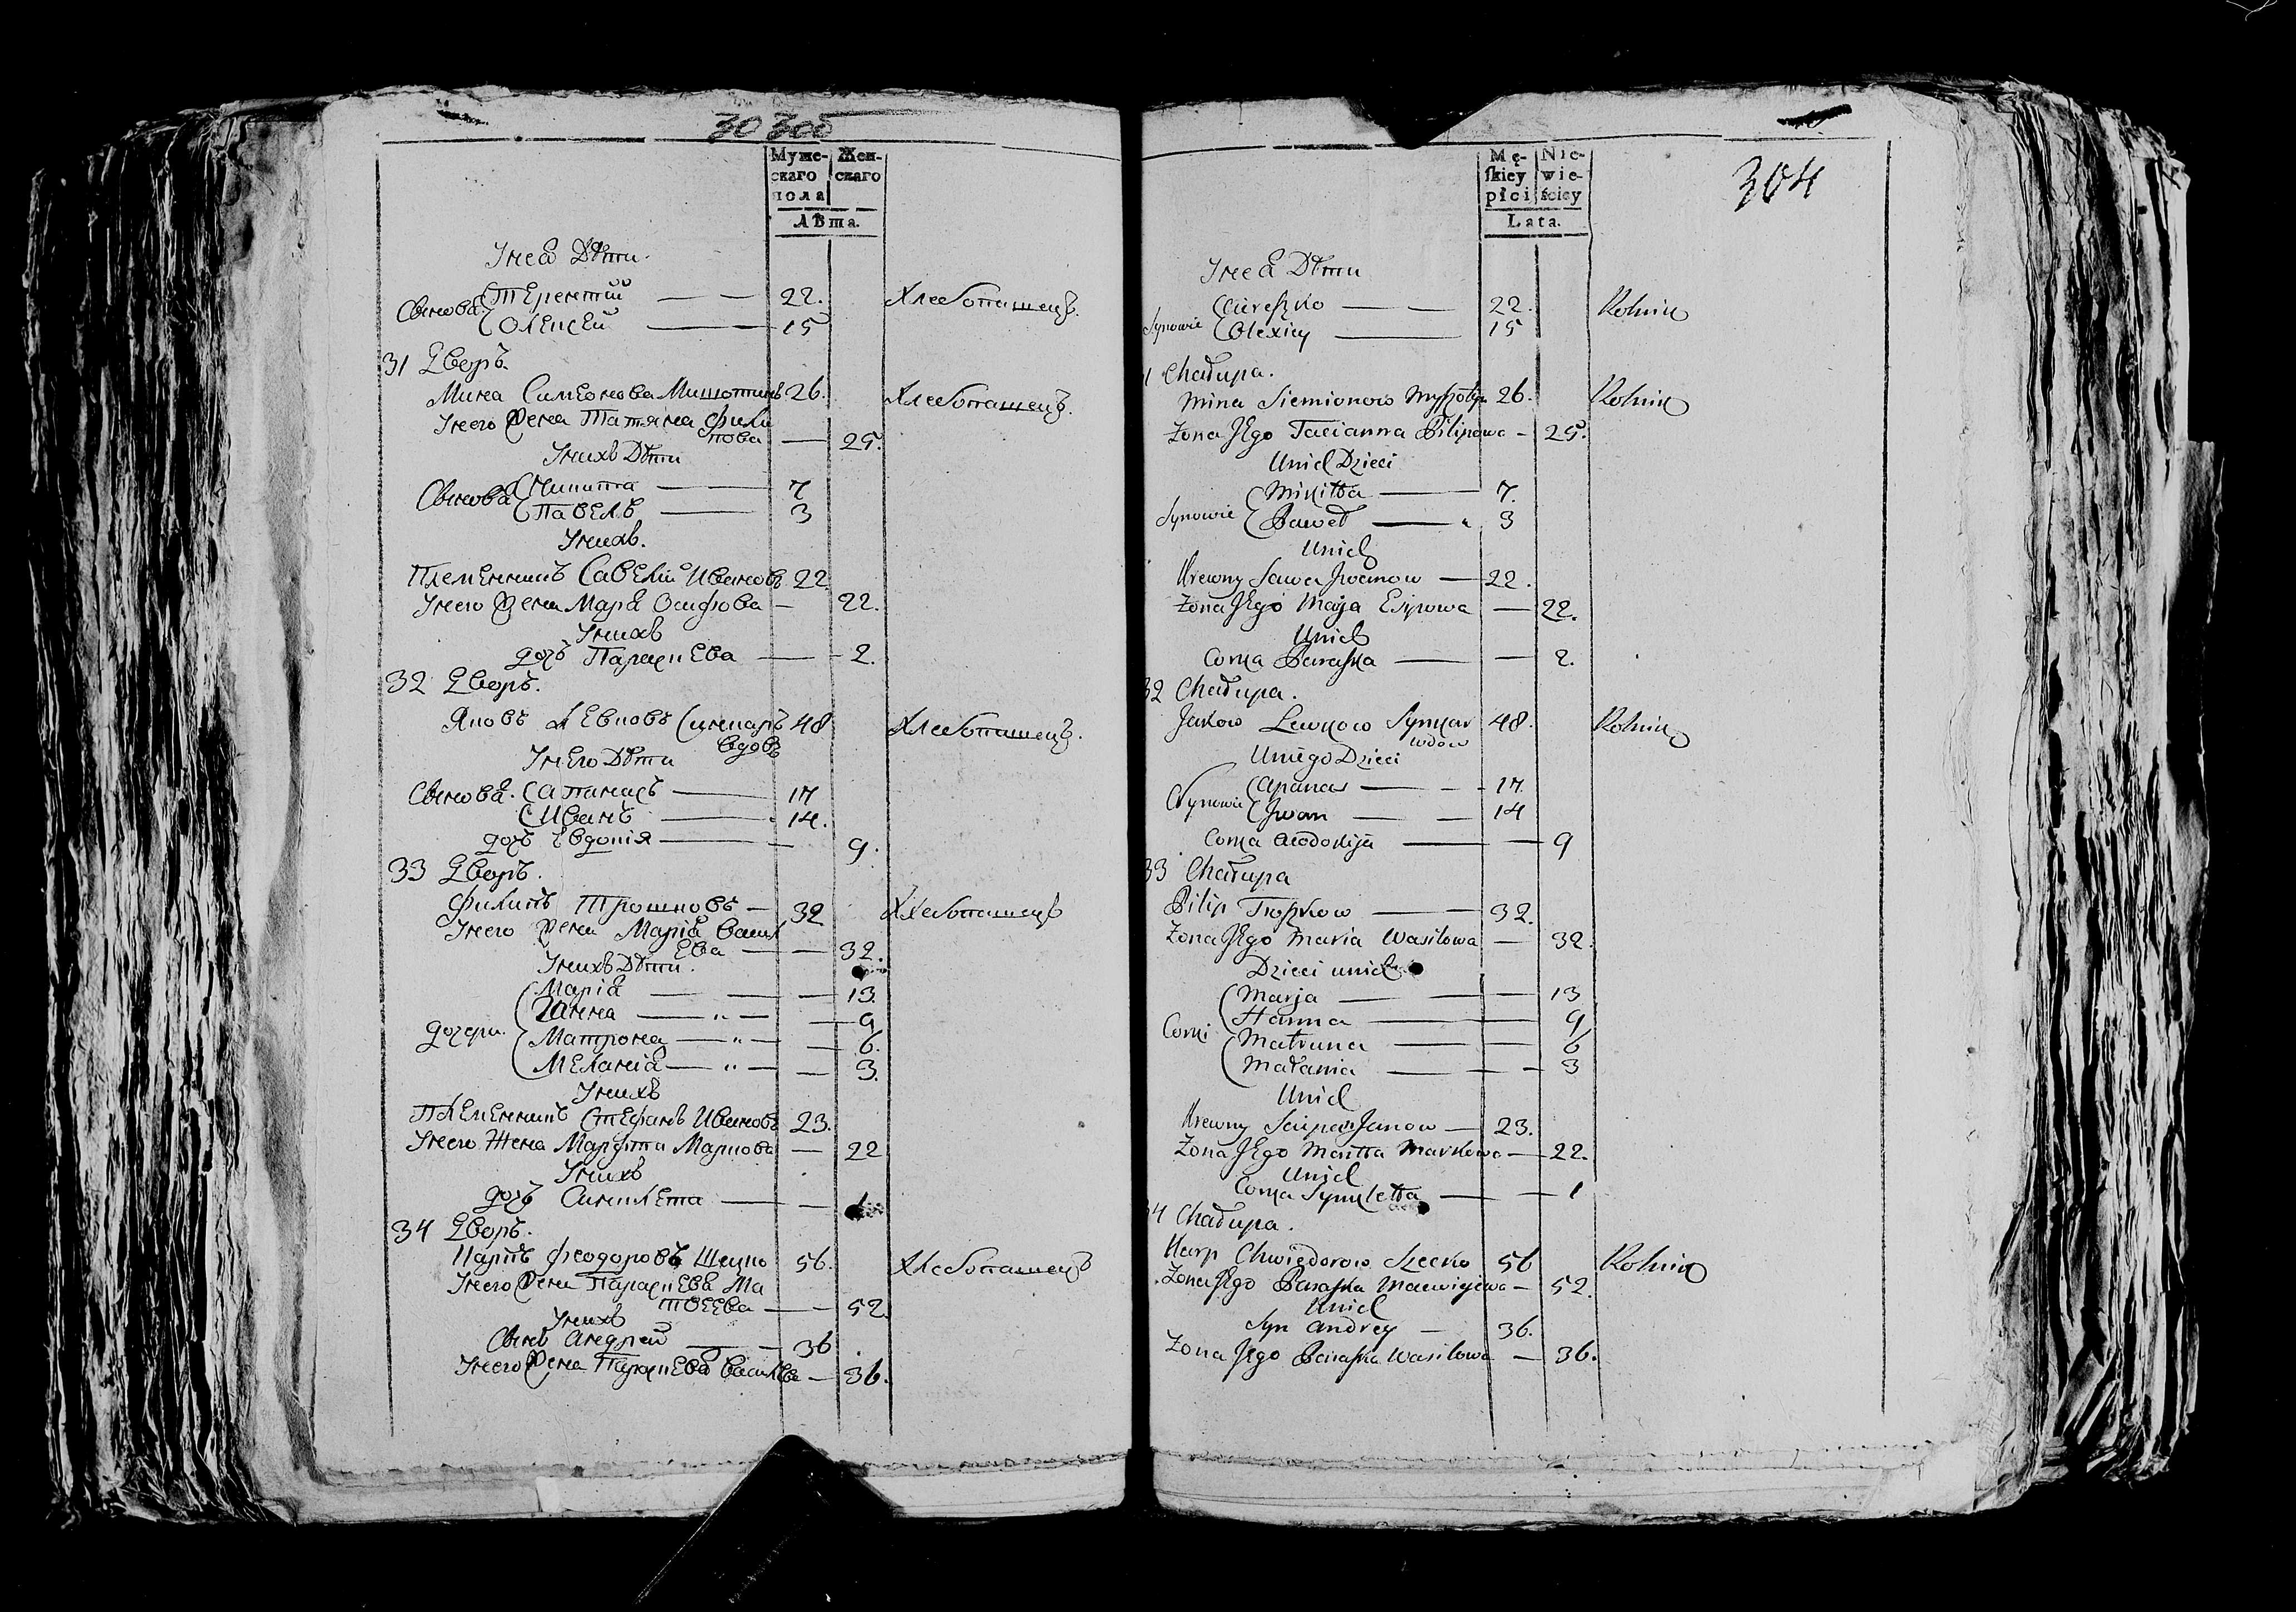 30 30об
Муже-
скаго
пола
Жен-
скаго
Лѣта.
У нея Дѣти.
Синова Терентій — — 22. Хлебопашецъ.
Олексей — 15
31 Дворъ.
Мина Симеонова Мишотинъ 26. Хлебопашецъ.
У него Жена Татяна Фили
пова — 25.
У нихъ Дѣти
Синова Никита — 7
Павелъ — 3
У нихъ.
Племенникъ Савелій Ивановъ 22
У него Жена Марія Осифова — 22.
У нихъ
дочь Параскева — 2.
32 Дворъ.
Яковъ Левковъ Синкаръ 48 Хлебопашецъ.
вдовъ
У него Дѣти
Синова. Апанасъ — 17
Иванъ — 14.
дочь Евдокія — 9.
33 Дворъ.
Филипъ Трошковъ — 32 Хлебопашецъ
У него Жена Марія Васил
ева — 32.
У нихъ Дѣти.
Марія — — 13.
Ганна — " — 9
дочери. Матрона — " — 6.
Меланія — " — 3.
У нихъ
Племенникъ Стефанъ Ивановъ 23.
У него Жена Марфта Маркова — 22
У нихъ
дочь Синклета — 1
34 Дворъ.
Карпъ Феодоровъ Шецко 56. Хлебопашецъ
У него Жена Параскева Ма
твеева — 52
У нихъ
Синъ Андрей — 36
У него Жена Параскева Василева — 36.
304
Mę-
ſkiey
płci
Nie-
wie-
ściey
Lata.
У нея Дѣти
22. Rolnik
Synowie Olexiey — 15
1 Chałupa.
Mina Siemionow 26. Rolnik
Zona Jego Tacianna Pilipowa — 25.
Unich Dzieci
Mikitta — 7.
Synowie Paweł — 3
Unich
Krewny Sawa Jwanow — 22.
Zona Jego Marja Esipowa — 22.
Unich
Corka Paraſka — 2.
32 Chałupa.
Jakow Lewkow Synkar 48. Rolnik
wdow
Uniego Dzieci
Apanas — 17.
Synowie Jwan — 14
Corka Awdokija — 9
33 Chałupa
Pilip Troſzkow — 32.
Zona Jego Maria Wasilowa — 32.
Dzieci unich
Marja — 13
Hanna — 9
Corki Matruna — 6
Małania — 3
Unich
Krewny Sciepan Janow — 23.
Zona Jego Martta Markowa — 22.
Unich
Corka Synkletta — 1
34 Chałupa.
Karp Chwiedorow Szecko 56 Rolnik
Zona Jego Paraſka Maćwiejewa — 52.
Unich
Syn Andrey — 36.
Zona Jego Paraſka Wasilowa — 36.